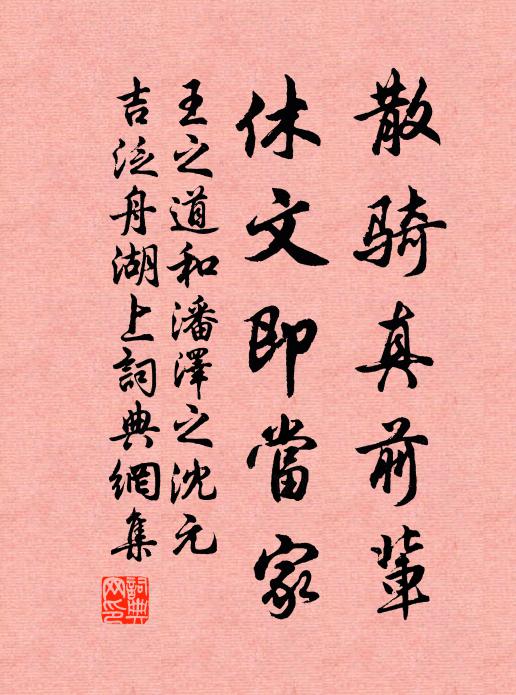 散骑真前輩
休文即當家
王之道和潘澤之沈元
吉泛舟湖上詞典網集
詞典网印